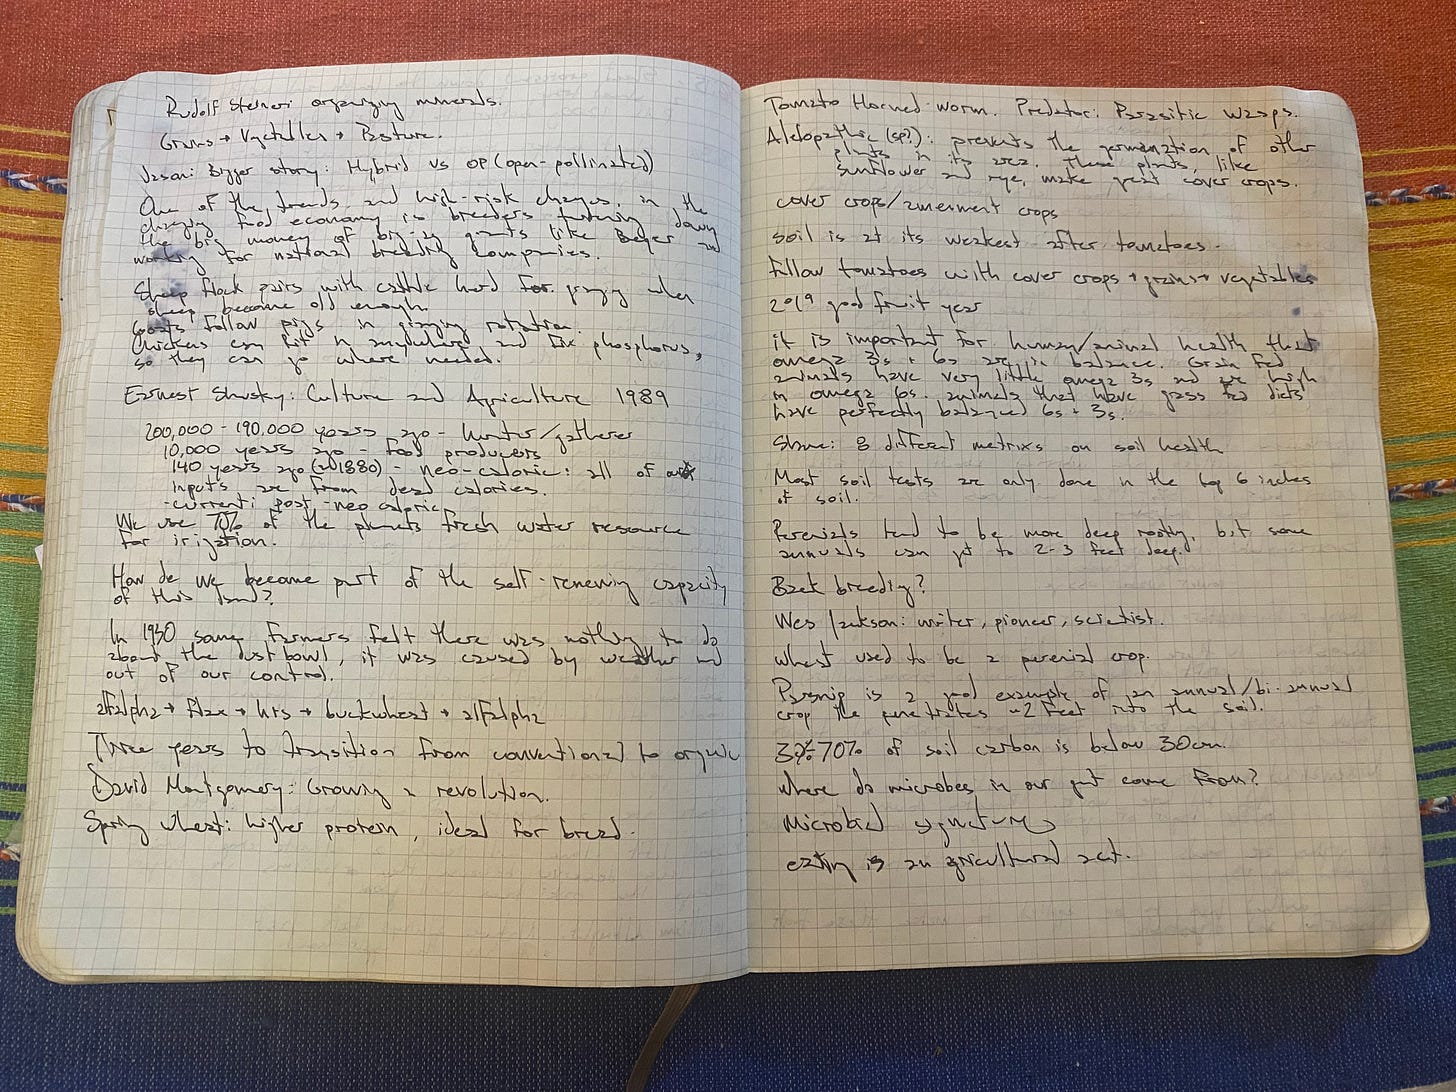 Rudolf Steiner: organizing minerals.
Grains → Vegetables → Pasture.
Jason: Bigger story: Hybrid vs OP (open-pollinated)
One of the trends and high-risk changes in the
changing food economy is breeders turning down
the big money of big-ag giants like Bayer and
working for national breeding companies.
Sheep flock pairs with cattle herd for grazing when
sheep become old enough.
Goats follow pigs in grazing rotation.
Chickens can fit in anywhere and fix phosphorus,
so they can go where needed.
Earnest Shusky: Culture and Agriculture 1989
200,000 - 190,000 years ago - hunter/gatherer
10,000 years ago - food producers
140 years ago (~1880) - neo-caloric: all of our
inputs are from dead calories.
-current: post-neo caloric
We use 70% of the planets fresh water resource
for irigation.
How do we become part of the self-renewing capacity
of this land?
In 1930 some farmers felt there was nothing to do
about the dust bowl, it was caused by weather and
out of our control.
alfalpha → flax → hrs → buckwheat → alfalpha
Three years to transition from conventional to organic
David Montgomery: Growing a revolution.
Spring wheat: higher protein, ideal for bread.
Tomato Horned-worm. Predator: Parasitic wasps.
Alelopathic (sp?): prevents the germination of other
plants in its area. These plants, like
sunflower and rye, make great cover crops.
cover crops/amerment crops
soil is at its weakest after tomatoes.
Follow tomatoes with cover crops → grains → vegetables
2019 good fruit year
it is important for human/animal health that
omega 3s + 6s are in balance. Grain fed
animals have very little omega 3s and are high
in omega 6s. animals that have grass fed diets
have perfectly balanced 6s + 3s.
8 different metrixs on soil health
Most soil tests are only done in the top 6 inches
of soil.
Perenials tend to be more deep rooting, but some
annuals can get to 2-3 feet deep.
Back breeding?
Wes Jackson: writer, pioneer, scientist.
wheat used to be a perenial crop.
Parsnip is a good example of an annual/bi-annual
crop the penetrates ~2 feet into the soil.
70% of soil carbon is below 30cm.
where do microbes in our gut come from?
Microbial signatures
eating is an agricultural act.